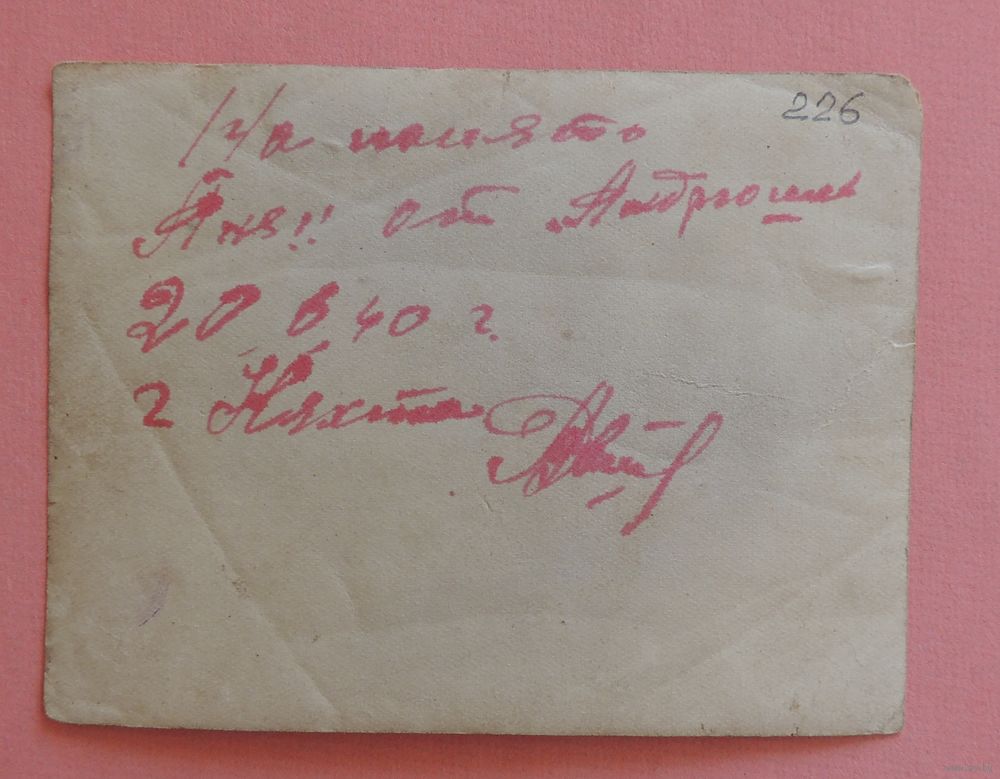 226
На память
Яня!! от Андрюши
20 6 40 г.
г Кяхта